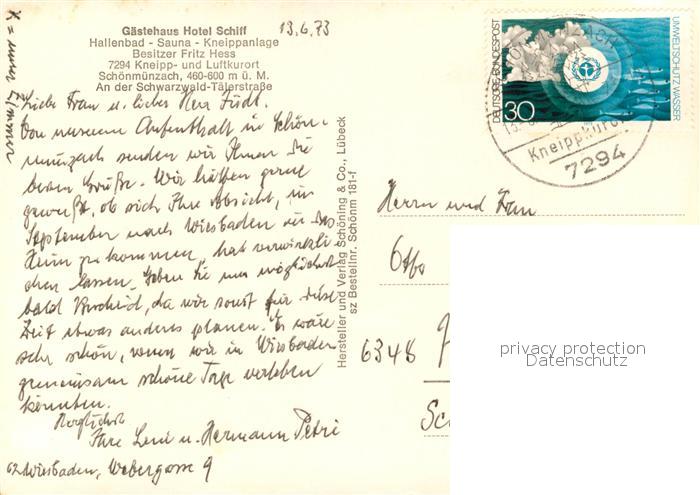 X = unser Zimmer
13.6.73
Gästehaus Hotel Schiff
Hallenbad - Sauna - Kneippanlage
Besitzer Fritz Hess
7294 Kneipp- und Luftkurort
Schönmünzach, 460-600 m ü. M.
An der Schwarzwald-Tälerstraße
Liebe Frau u. lieber Herr
Von unserem Aufenthalt in Schön-
münzach senden wir Ihnen die
besten Grüße. Wir hätten gerne
gewußt, ob sich Ihre Absicht, im
September nach Wiesbaden in das
Heim zu kommen, hat verwirkli-
chen lassen. Geben Sie uns möglichst
bald Bescheid, da wir sonst für diese
Zeit etwas anderes planen. Es wäre
sehr schön, wenn wir in Wiesbaden
gemeinsam schöne Tage verleben
könnten.
Herzlichst
Ihre Leni u. Hermann Petri
62 Wiesbaden, Webergasse 9
Hersteller und Verlag Schöning & Co., Lübeck
sz Bestellnr. Schönm 181-f
DEUTSCHE BUNDESPOST
30
UMWELTSCHUTZ WASSER
Kneippkurort
7294
Herrn und Frau
Otto
6348
privacy protection
Datenschutz